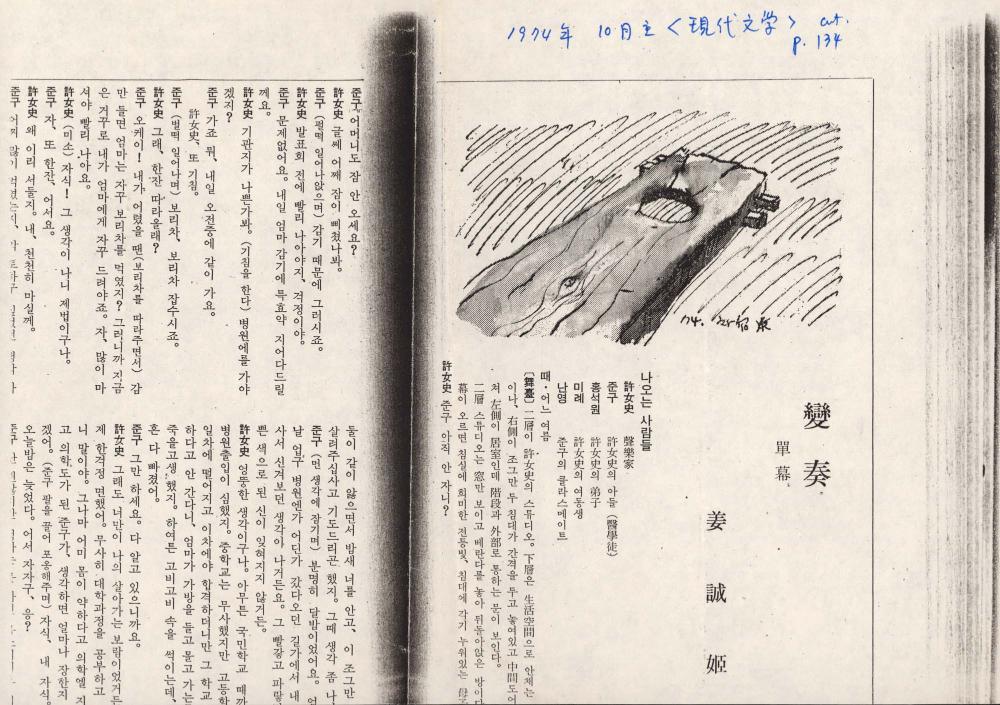 1974年 10月호 <現代文学> cut.
p. 134
變奏
單幕
姜誠姬
74.
나오는 사람들
許女史 聲樂家
준구 許女史의 아들 (醫學徒)
홍석원 許女史의 弟子
미례 許女史의 여동생
난영 준구의 클라스메이트
때·어느 여름
〔舞臺〕 二層이 許女史의 스튜디오。下層은 生活空間으로 안체는
이나、右側이 조그만 두 침대가 간격을 두고 놓여있고 中間도어
쳐 左側이 居室인데 階段과 外部로 통하는 문이 보인다。
二層 스튜디오는 窓만 보이고 베란다를 놓아 뒤돌아앉은 방이다
幕이 오르면 침실에 희미한 전등빛、침대에 각기 누워있는 母子
許女史 준구 아직 안 자니?
준구 어머니도 잠 안 오세요?
許女史 글쎄 어째 잠이 삐쳤나봐。
준구 (펄떡 일어나앉으며) 감기 때문에 그러시죠。
許女史 발표회 전에 빨리 나아야지、걱정이야。
준구 문제없어요。내일 엄마 감기에 특효약 지어다드릴
께요。
許女史 기관지가 나쁜가봐。(기침을 한다) 병원에를 가야
겠지?
준구 가죠 뭐、내일 오전중에 같이 가요。
許女史、또 기침。
준구 (벌떡 일어나며) 보리차、보리차 잡수시죠。
許女史 그래、한잔 따라올래?
준구 오케이! 내가 어렸을 땐(보리차를 따라주면서) 감
만 들면 엄마는 자꾸 보리차를 먹였지? 그러니까 지금
은 거꾸로 내가 엄마에게 자꾸 드려야죠。자、많이 마
셔야 빨리 나아요。
許女史 (미소) 자식! 그 생각이 나니 제법이구나。
준구 자、또 한잔、어서요。
許女史 왜 이리 서둘지。내、천천히 마실께。
준구 어찌 많이
둘이 같이 앓으면서 밤새 너를 안고、이 조그만
살려주십사고 기도드리곤 했지。그때 생각 좀 나
준구 (먼 생각에 잠기며) 분명히 달밤이었어요。엄
날 업구 병원엔가 어딘가 갔다오던 길가에서 내
사서 신겨보던 생각이 나거든요。그 빨갛고 파랗
쁜 색으로 된 신이 잊혀지지 않거든。
許女史 엉뚱한 생각이구나。아무튼 국민학교 때까
병원출입이 심했지。중학교는 무사했지만 고등학
일차에 떨어지고 이차에야 합격하더니만 그 학교
하다고 안 간다니、엄마가 가방을 들고 몰고 가는
죽을고생 했지。하여튼 고비고비 속을 썩이는데、
혼 다 빠졌어。
준구 그만 하세요。다 알고 있으니까요。
許女史 그래도 너만이 나의 살아가는 보람이었거든
제 한걱정 면했어。무사히 대학과정을 공부하고
니 말이야。그나마 어미 몸이 약하다고 의학엘 지
고 의학도가 된 준구가、생각하면 얼마나 장한지
겠어。(준구 팔을 끌어 포옹해주며) 자식、내 자식。
오늘밤은 늦었다。어서 자자구、응?